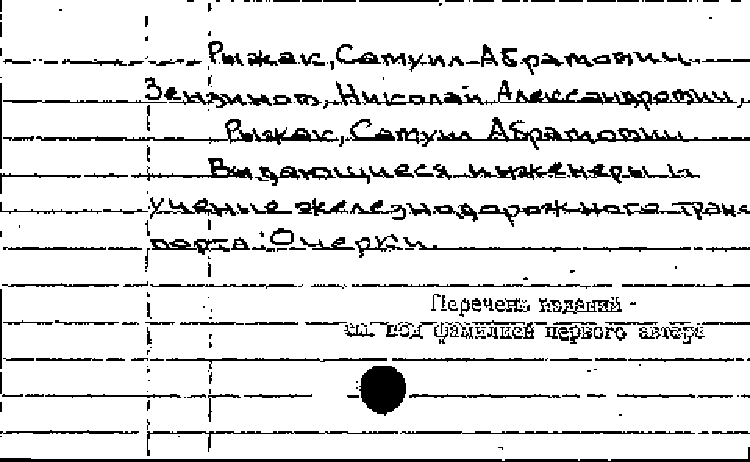 Рыжак, Самуил Абрамович
Зензинов, Николай Александрович,
Рыжак, Самуил Абрамович
Выдающиеся инженеры и
ученые железнодорожного транс
порта: Очерки.
Перечень изданий -
см. под фамилией первого автора